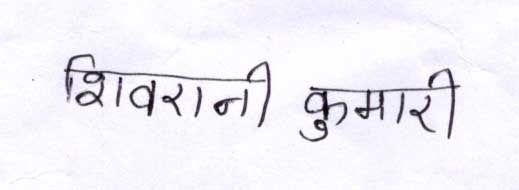 शिवरानी कुमारी